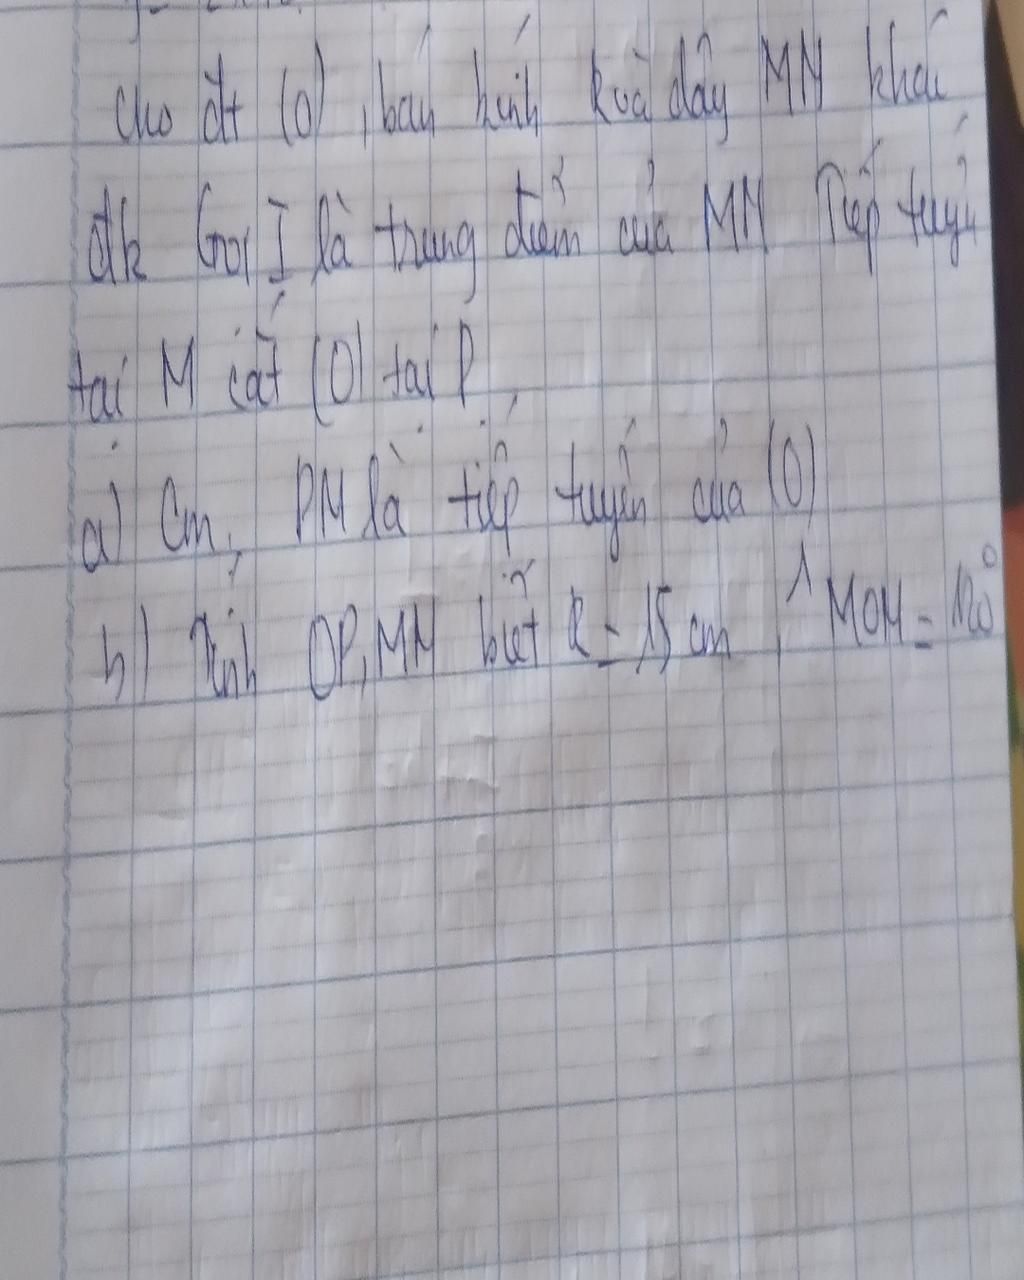 cho đt (O), bán kính R và dây MN khác
đk Gọi I là trung điểm của MN Tiếp tuyến
tại M cắt (O) tại P
a) Cm, PM là tiếp tuyến của (O)
b) Tính OP, MN biết R = 15 cm, MON = 120°